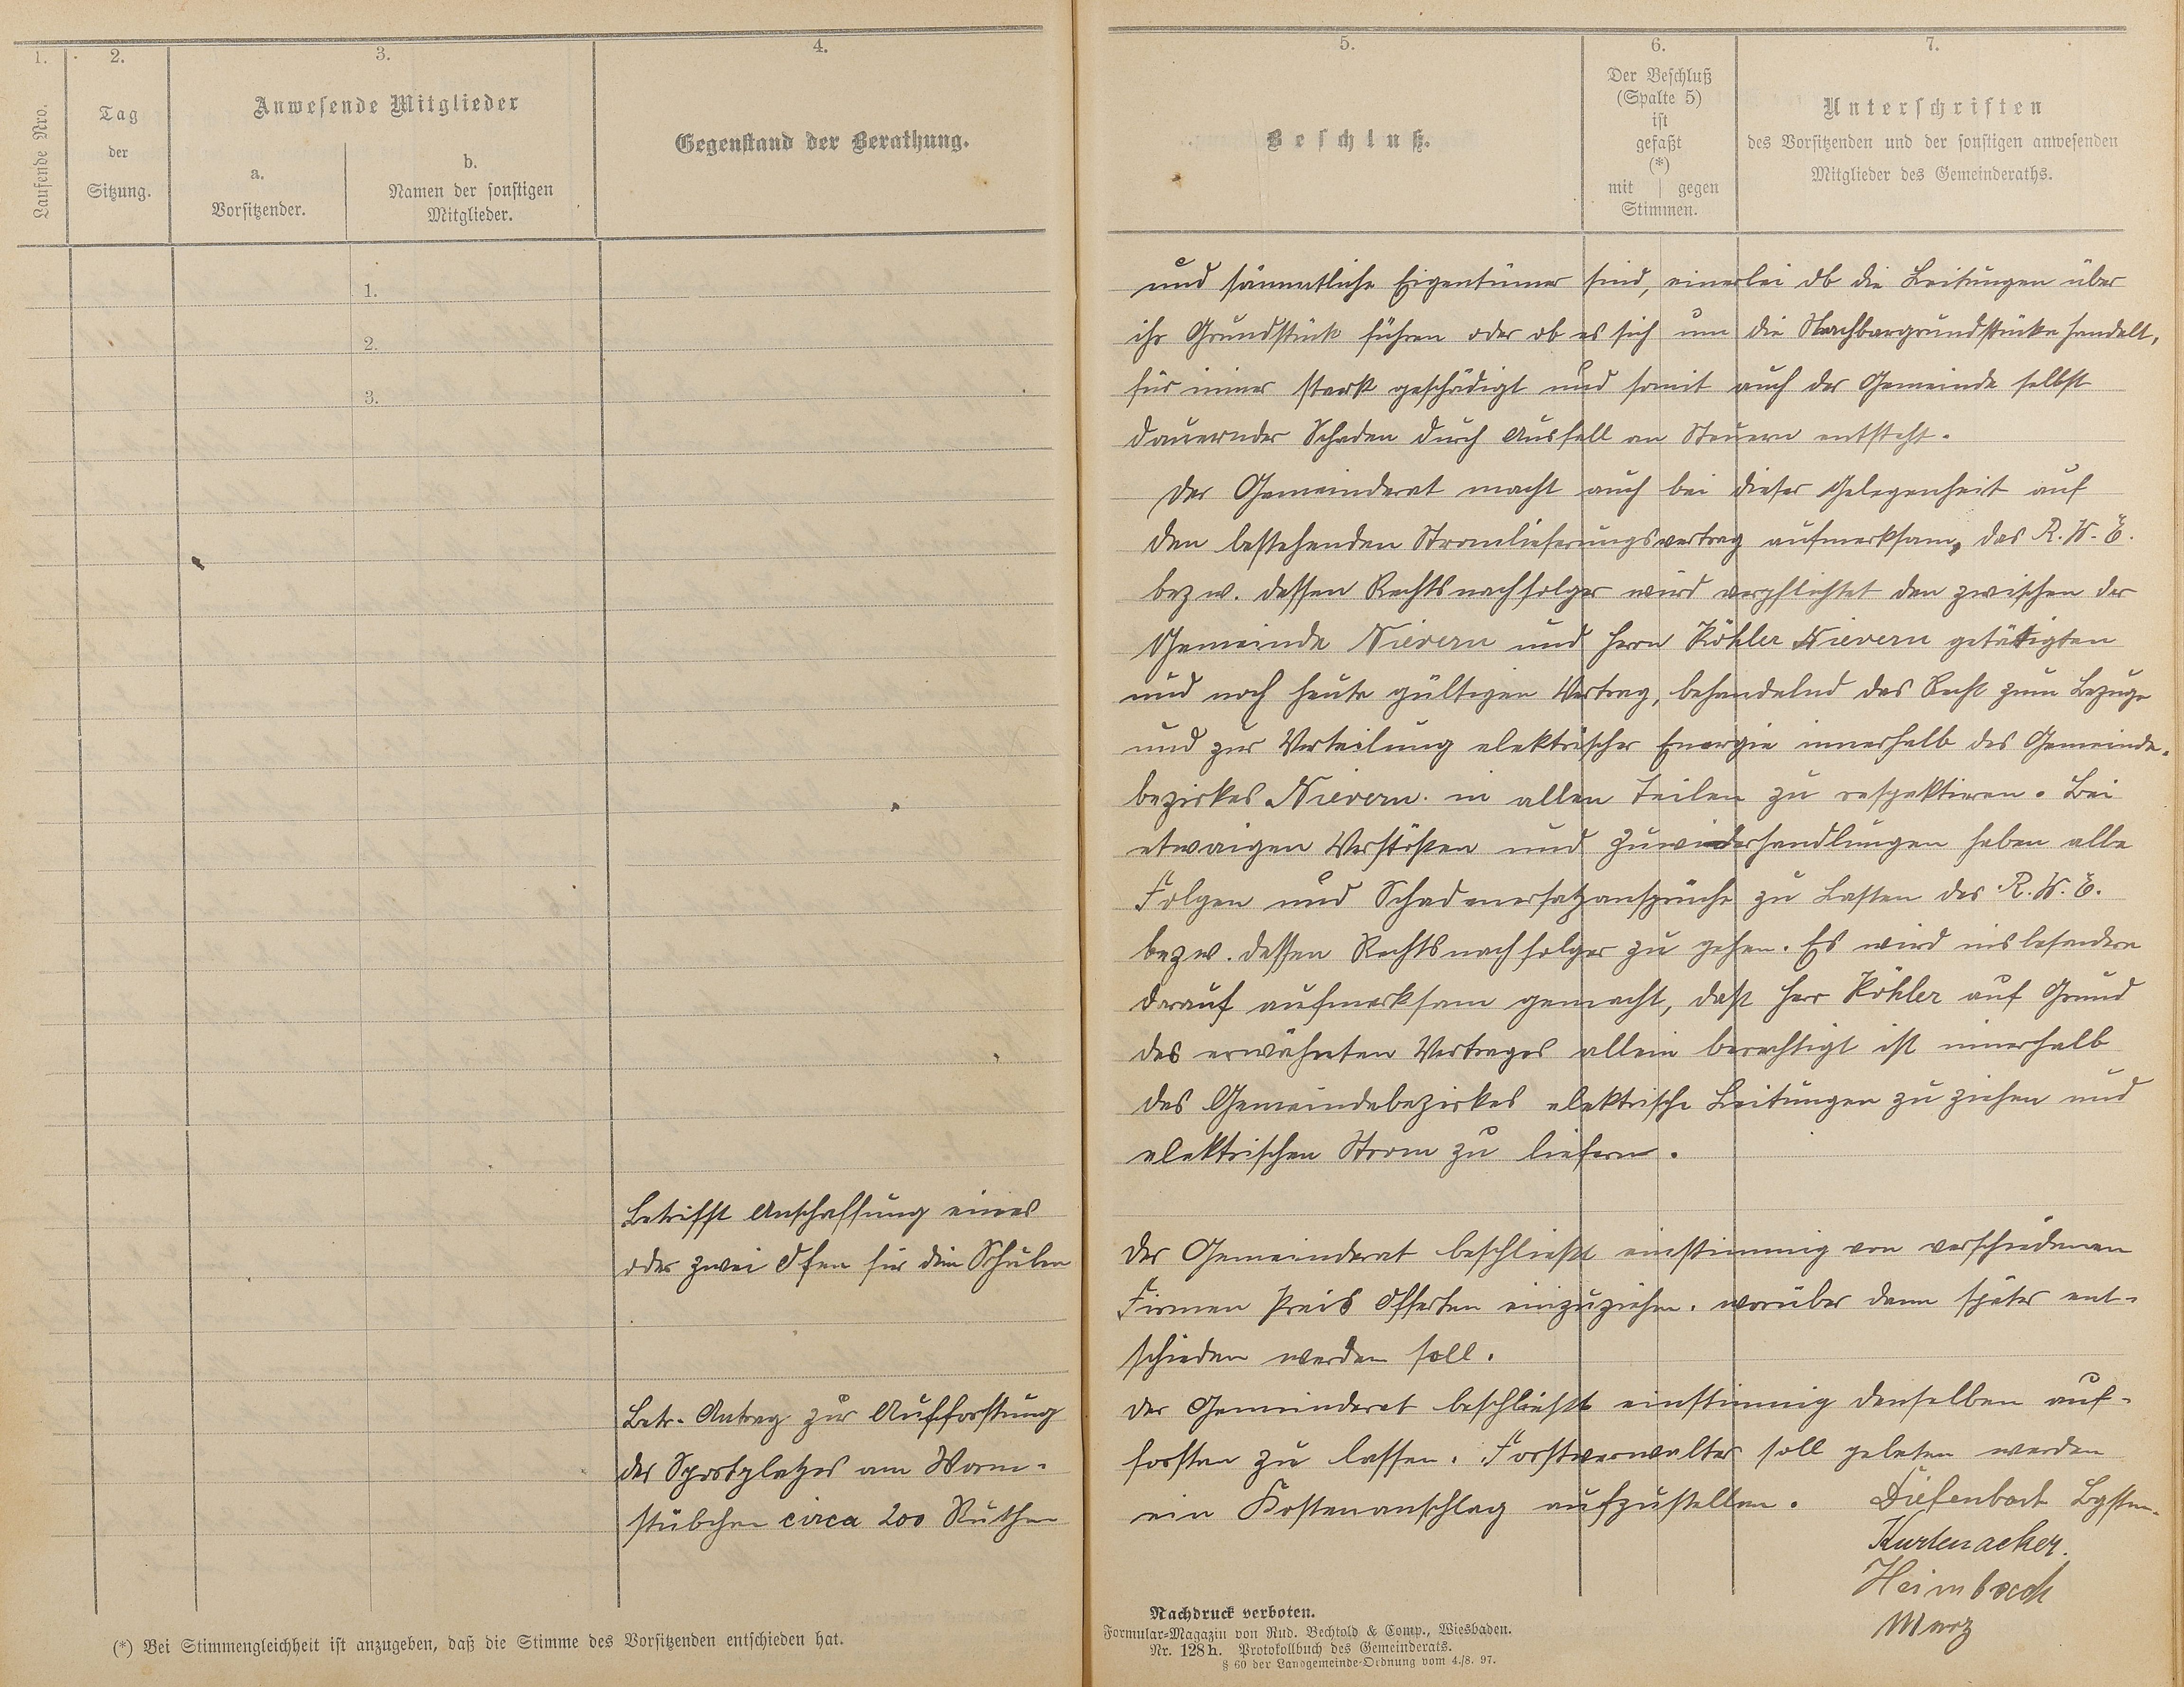 1.
Laufende Nro.
2.
Tag
der
Sitzung.
3.
Anwesende Mitglieder
a.
Vorsitzender.
b.
Namen der sonstigen
Mitglieder.
4.
Gegenstand der Berathung.
5.
Beschluß.
6.
Der Beschluß
(Spalte 5)
ist
gefaßt
(*)
mit | gegen
Stimmen.
7.
Unterschriften
des Vorsitzenden und der sonstigen anwesenden
Mitglieder des Gemeinderaths.
1.
2.
3.
und sämmtliche Eigentümer sind, einerlei ob die Leitungen über
ihr Grundstück führen oder ob es sich um die Nachbargrundstücke handelt,
für immer stark geschädigt und somit auch der Gemeinde selbst
dauernder Schaden durch Ausfall an Steuern entsteht.
Der Gemeinderat macht auch bei dieser Gelegenheit auf
den bestehenden Stromlieferungsvertrag aufmerksam, das R.W.E.
bezw. dessen Rechtsnachfolger wird verpflichtet den zwischen der
Gemeinde Nievern und Herrn Köhler Nievern getätigten
und noch heute gültigen Vertrag, behandelnd das Recht zum Bezuge
und zur Verteilung elektrischer Energie innerhalb des Gemeinde-
bezirkes Nievern in allen Teilen zu respektieren. Bei
etwaigen Verstößen und Zuwiderhandlungen haben alle
Folgen und Schadenersatzansprüche zu Lasten des R.W.E.
bezw. dessen Rechtsnachfolger zu gehen. Es wird insbesondere
darauf aufmerksam gemacht, daß Herr Köhler auf Grund
des erwähnten Vertrages allein berechtigt ist innerhalb
des Gemeindebezirkes elektrische Leitungen zu ziehen und
elektrischen Strom zu liefern.
Betrifft Anschaffung eines
oder zwei Ofen für die Schulen
Der Gemeinderat beschließt einstimmig von verschiedenen
Firmen Preis Offerten einzuziehen. worüber dann später ent-
schieden werden soll.
Betr. Antrag zur Aufforstung
des Sportplatzes am Worm-
stübchen circa 200 Ruthen
Der Gemeinderat beschließt einstimmig denselben auf-
forsten zu lassen. Forstverwalter soll gebeten werden
ein Kostenanschlag aufzustellen.
Diefenbach Bgstm.
Kurtenacker.
Heimbach
Marz
(*) Bei Stimmengleichheit ist anzugeben, daß die Stimme des Vorsitzenden entschieden hat.
Nachdruck verboten.
Formular-Magazin von Rud. Bechtold & Comp., Wiesbaden.
Nr. 128h. Protokollbuch des Gemeinderats.
§ 60 der Landgemeinde-Ordnung vom 4./8. 97.